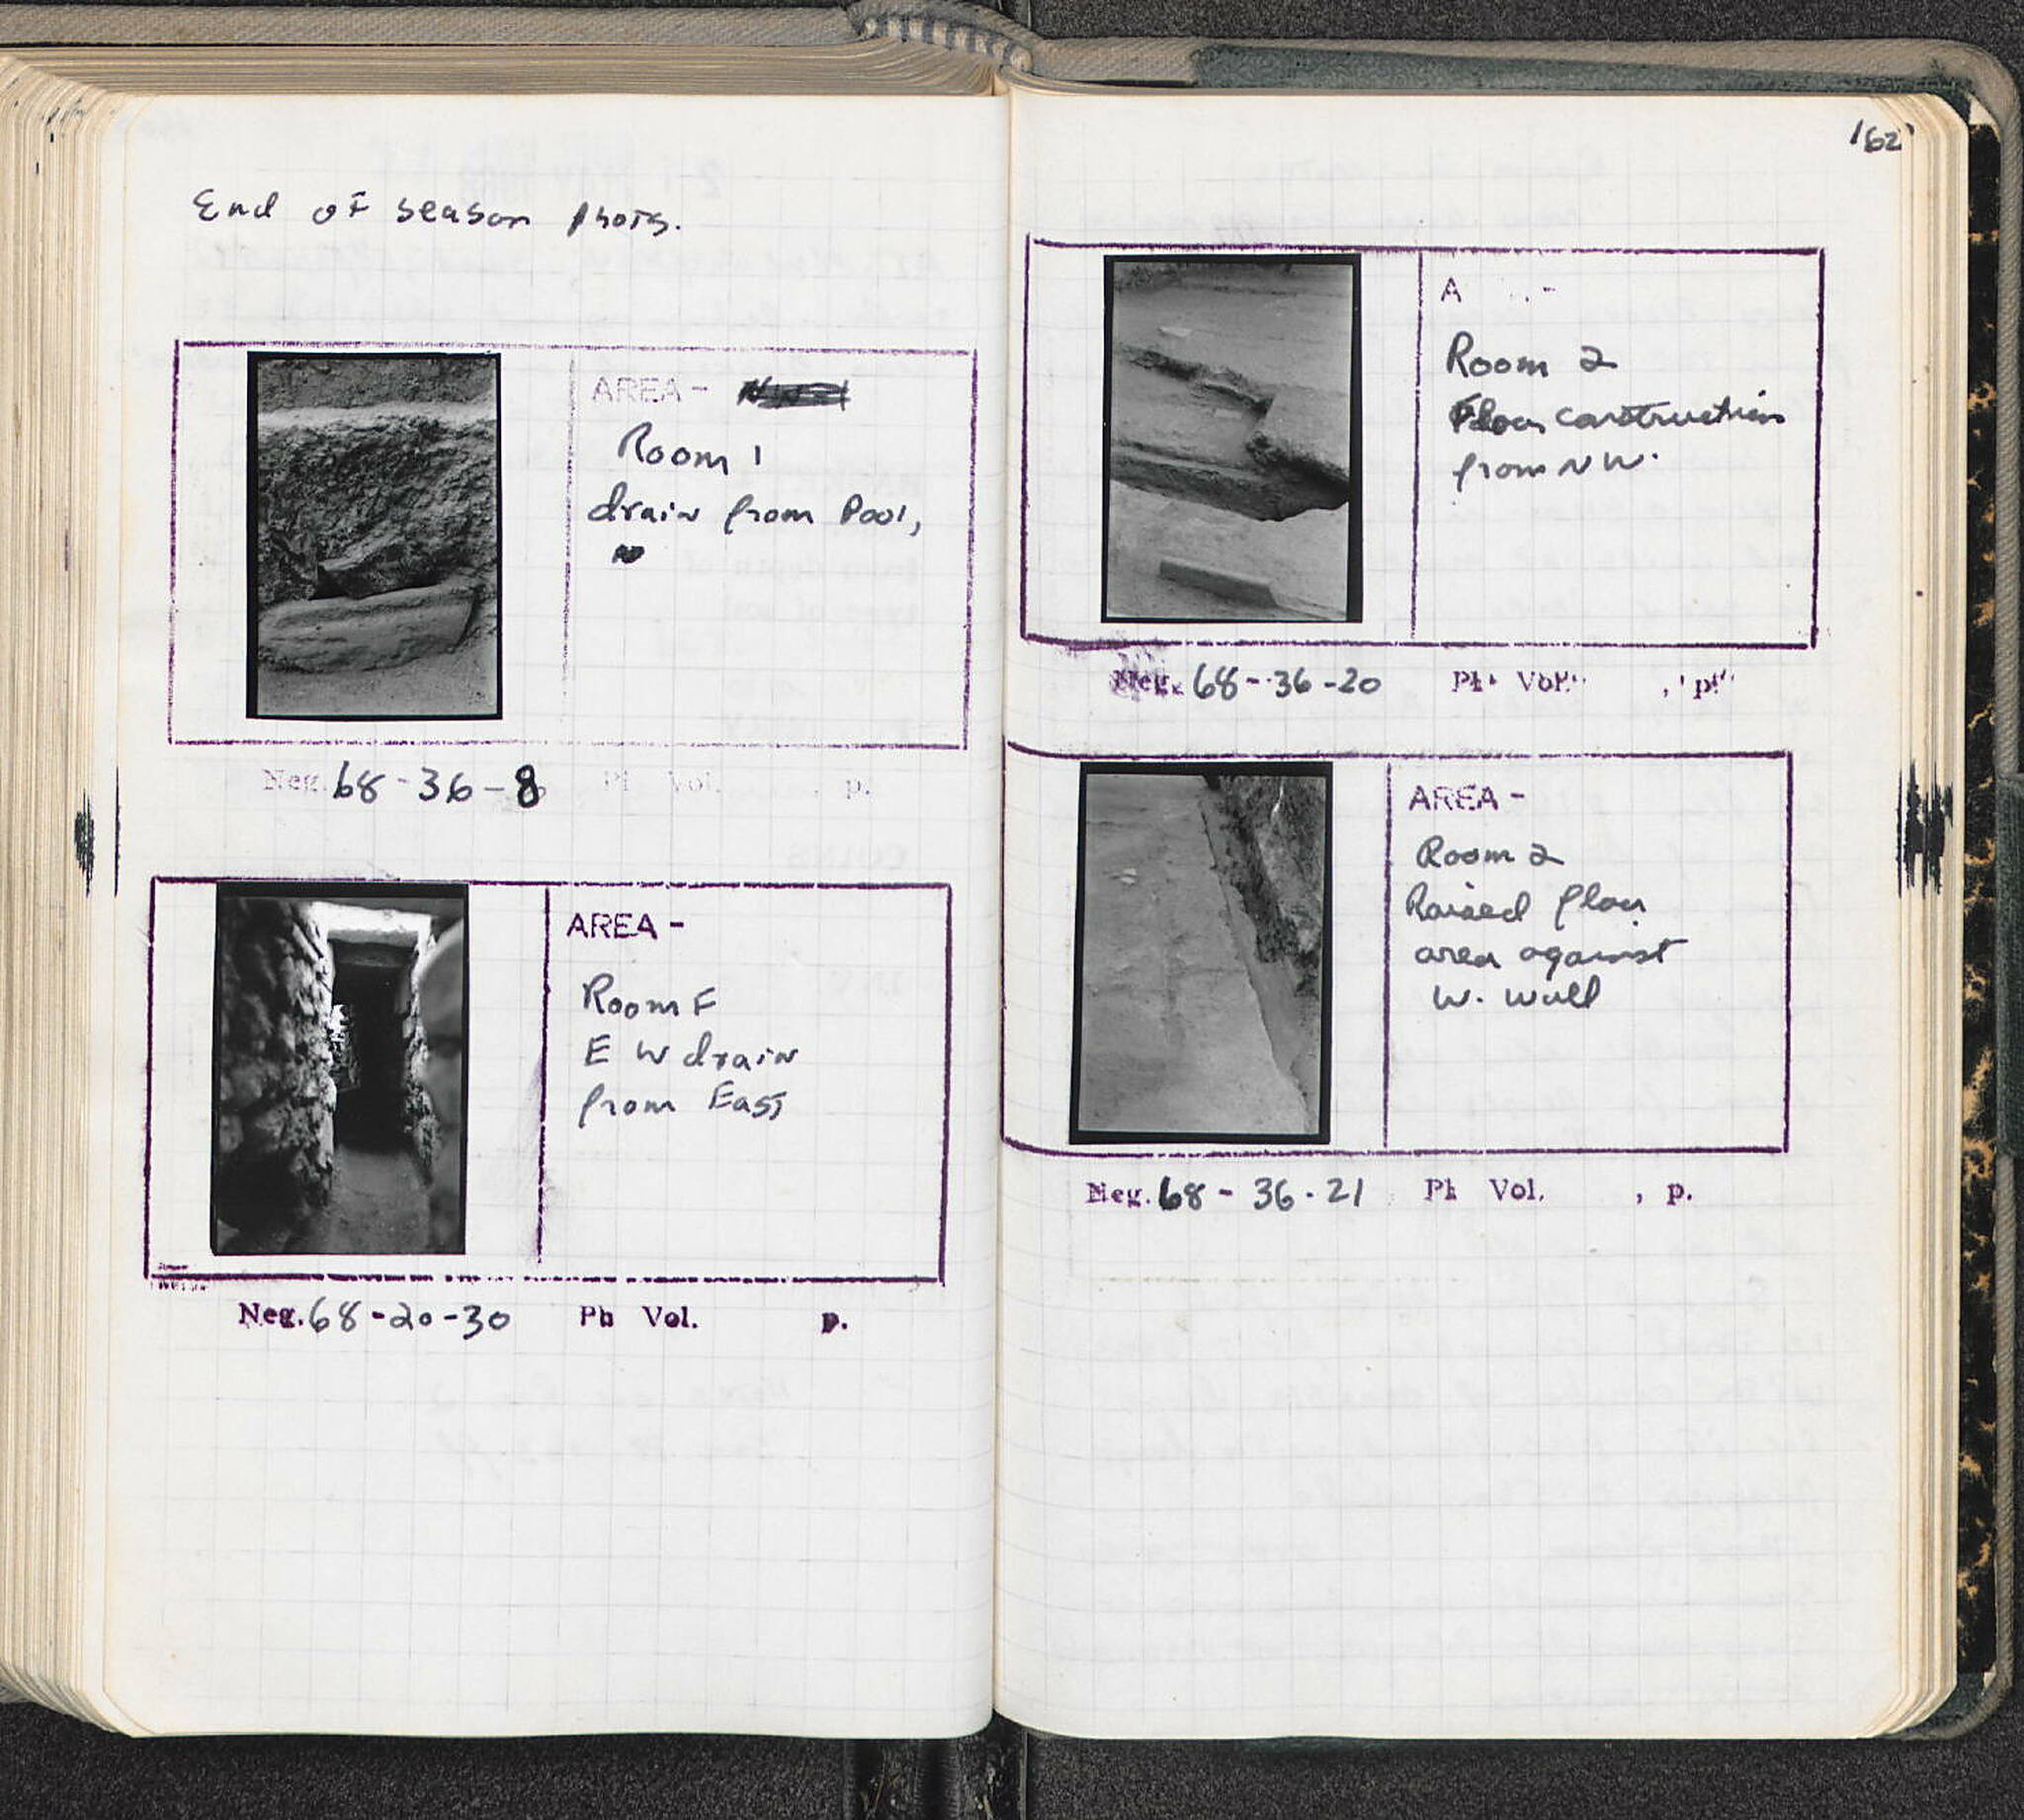 End of season phots.
AREA -
Room 1
drain from Pool,
Neg. 68-36-8 Ph Vol. , p.
AREA -
Room F
E W drain
from East
Neg. 68-20-30 Ph Vol. p.
162
A -
Room 2
Floor construction
from NW.
Neg. 68-36-20 Ph Vol. , p.
AREA -
Room 2
Raised floor
area against
W. wall
Neg. 68-36-21 Ph Vol. , p.